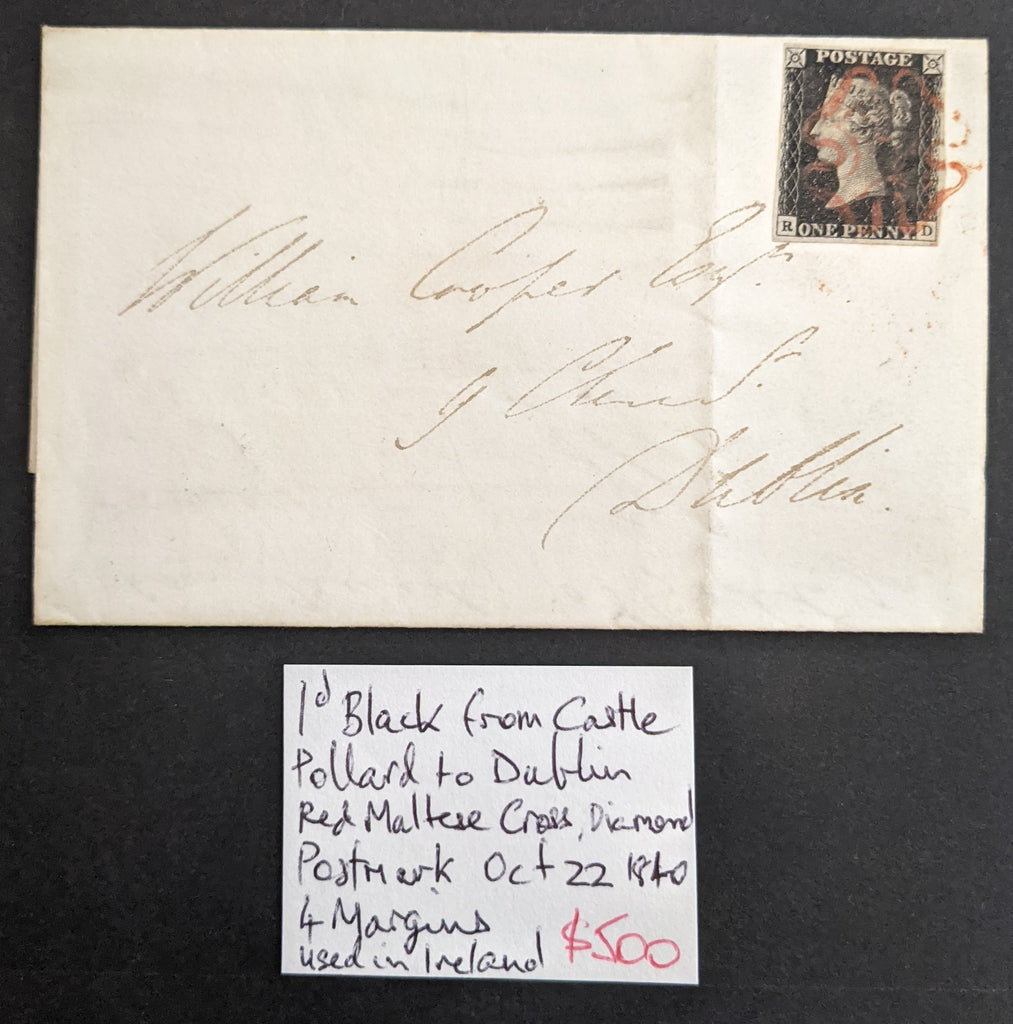 POSTAGE
R ONE PENNY. D
William Cooper Esqr.
9
Dublin.
1d Black from Castle
Pollard to Dublin
Red Maltese Cross, Diamond
Postmark Oct 22 1840
4 Margins
used in Ireland $500